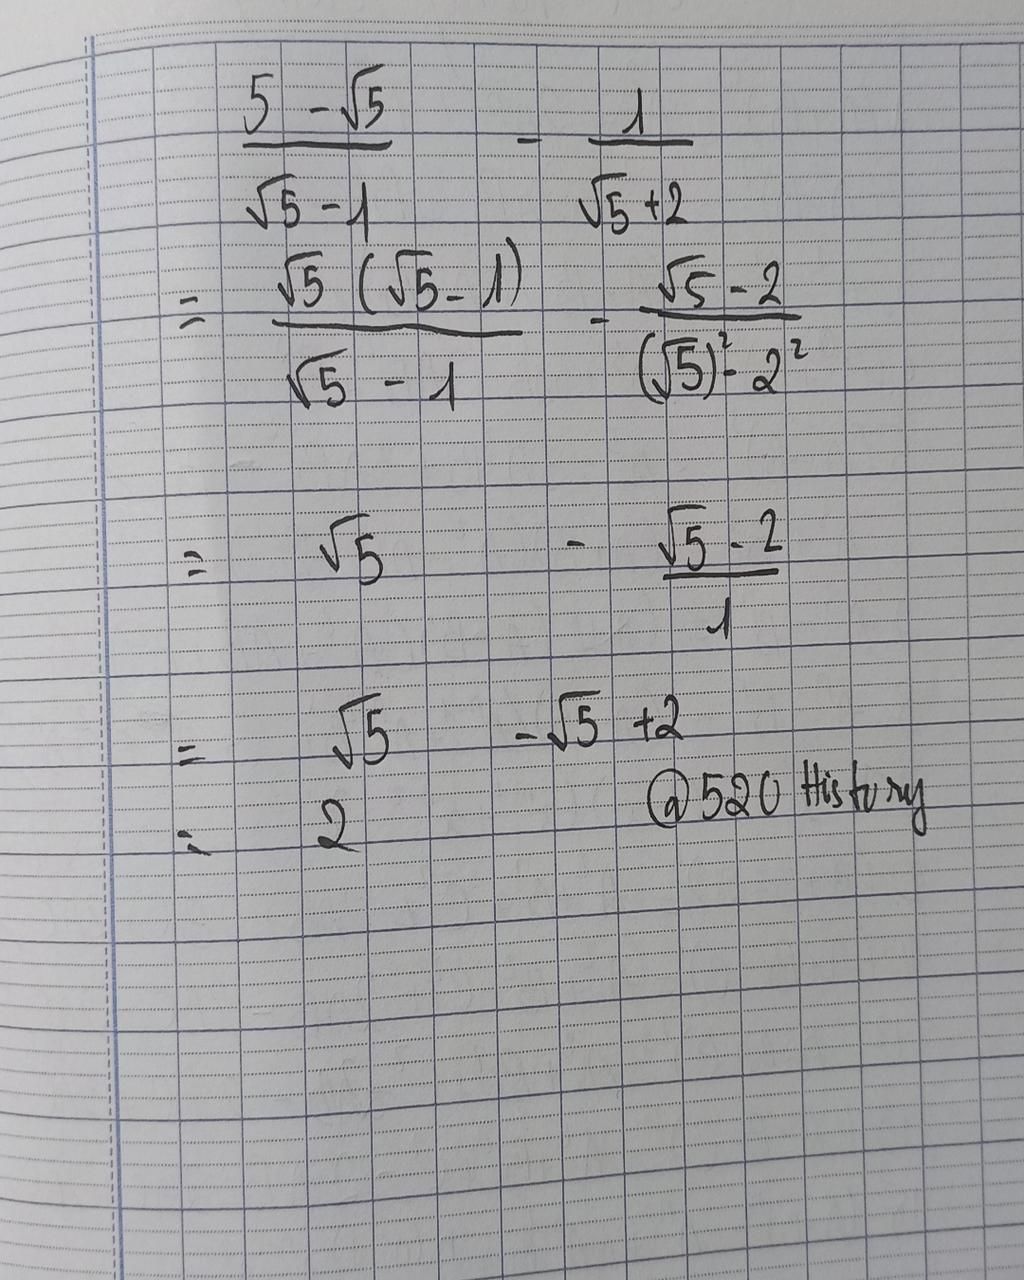 5 - √5 / √5 - 1 - 1 / √5 + 2
= √5 (√5 - 1) / √5 - 1 - √5 - 2 / (√5)² - 2²
= √5 - √5 - 2 / 1
= √5 - √5 + 2
= 2
@520 History